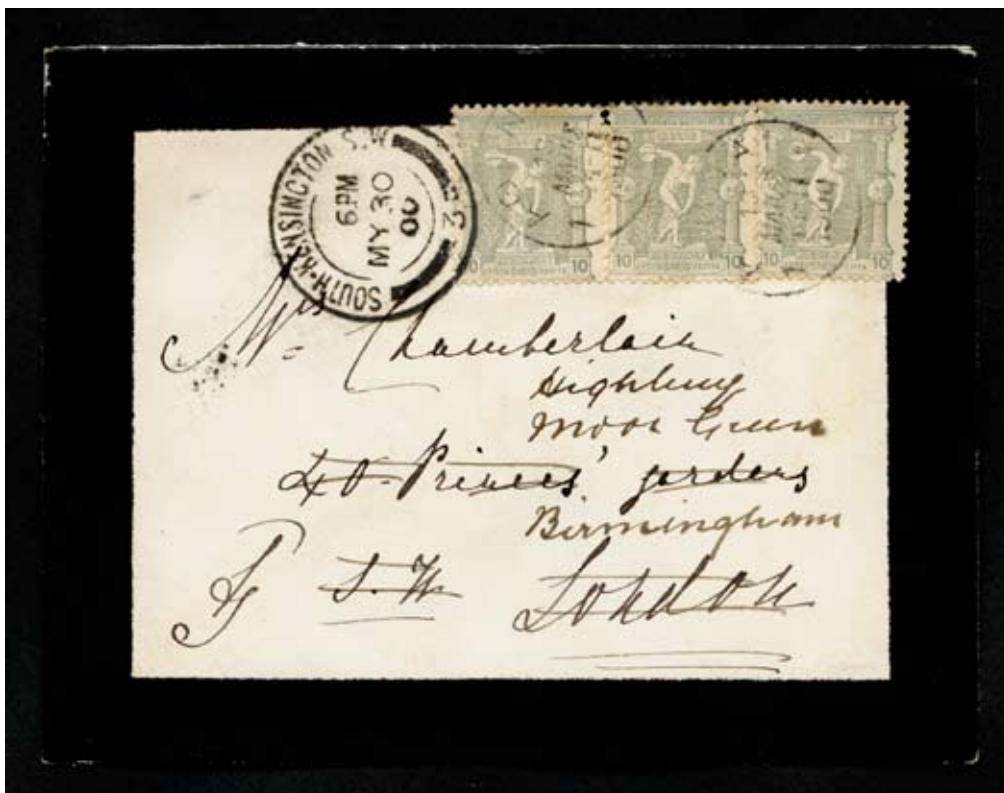 SOUTH-KENSINGTON S.W
6 PM
MY 30
00
32
10 10
10 10
10
Mrs Chamberlain
Highbury
Moor Green
40 Princes' gardens
Birmingham
S.W.
London